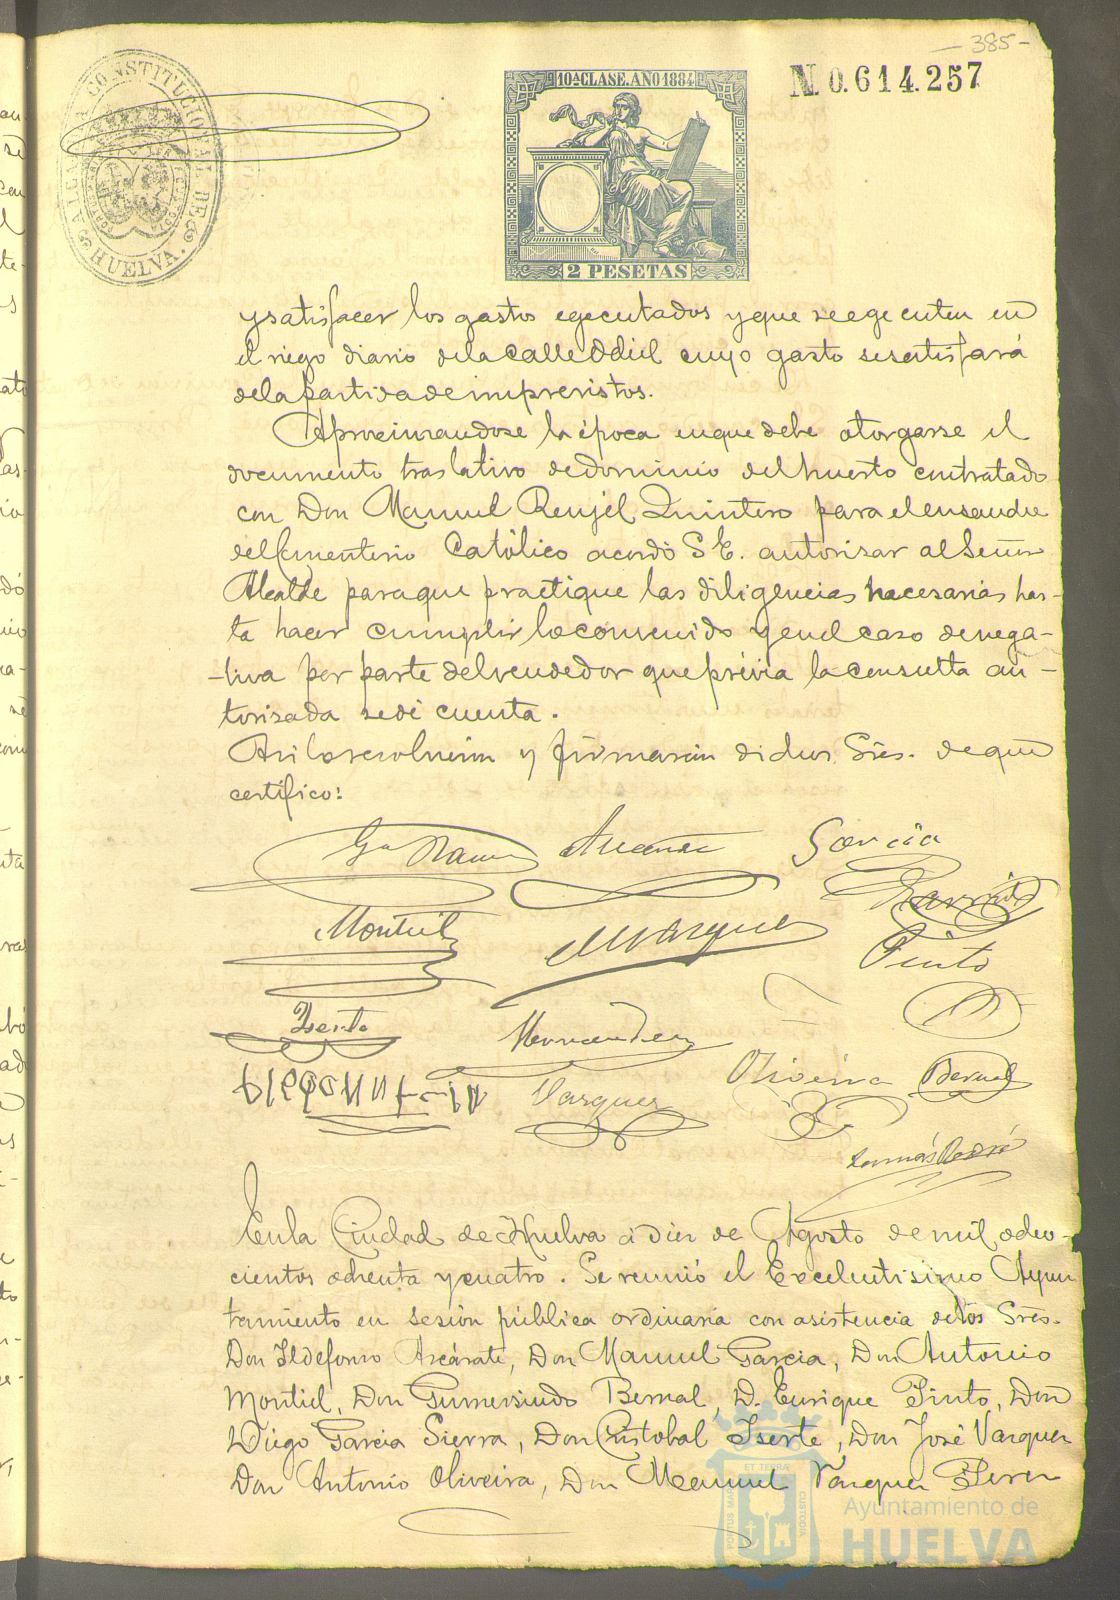 - 385 -
ALCALDIA CONSTITUCIONAL DE HUELVA.
10ª CLASE. AÑO 1884
N 0.614.257
2 PESETAS
y satisfacer los gastos egecutados y que se egecuten en
el riego diario de la calle Odiel cuyo gasto se satisfará
de la partida de imprevistos.
Aprocsimandose la época en que debe otorgarse el
documento traslativo de dominio del huerto contratado
con Don Manuel Renjél Quintero para el ensanche
del Cementerio Católico acordó S.E. autorizar al Señor
Alcalde para que practique las diligencias nacesarias has-
ta hacer cumplir lo convenido y en el caso de nega-
-tiva por parte del vendedor que prévia la consulta au-
torizada se dé cuenta.
Asi lo resolvieron y firmarán dichos Sres. de que
certifico:
García
Garrido
Montiel
Marquez
Pinto
Iserte
Hernandez
Oliveira
Bernal
Vazquez
En la Ciudad de Huelva á diez de Agosto de mil ocho-
cientos ochenta y cuatro. Se reunió el Excelentisimo Ayun
tamiento en sesión pública ordinaria con asistencia de los Sres.
Don Ildefonso Azcárate, Don Manuel Garcia, Don Antonio
Montiel, Don Gumersindo Bernal, D. Enrique Pinto, Don
Diego Garcia Sierra, Don Cristobal Iserte, Don José Vazquez
Don Antonio Oliveira, Don Manuel Vazquez Perez
PORTUS MARIS ET TERRÆ CUSTODIA
Ayuntamiento de
HUELVA